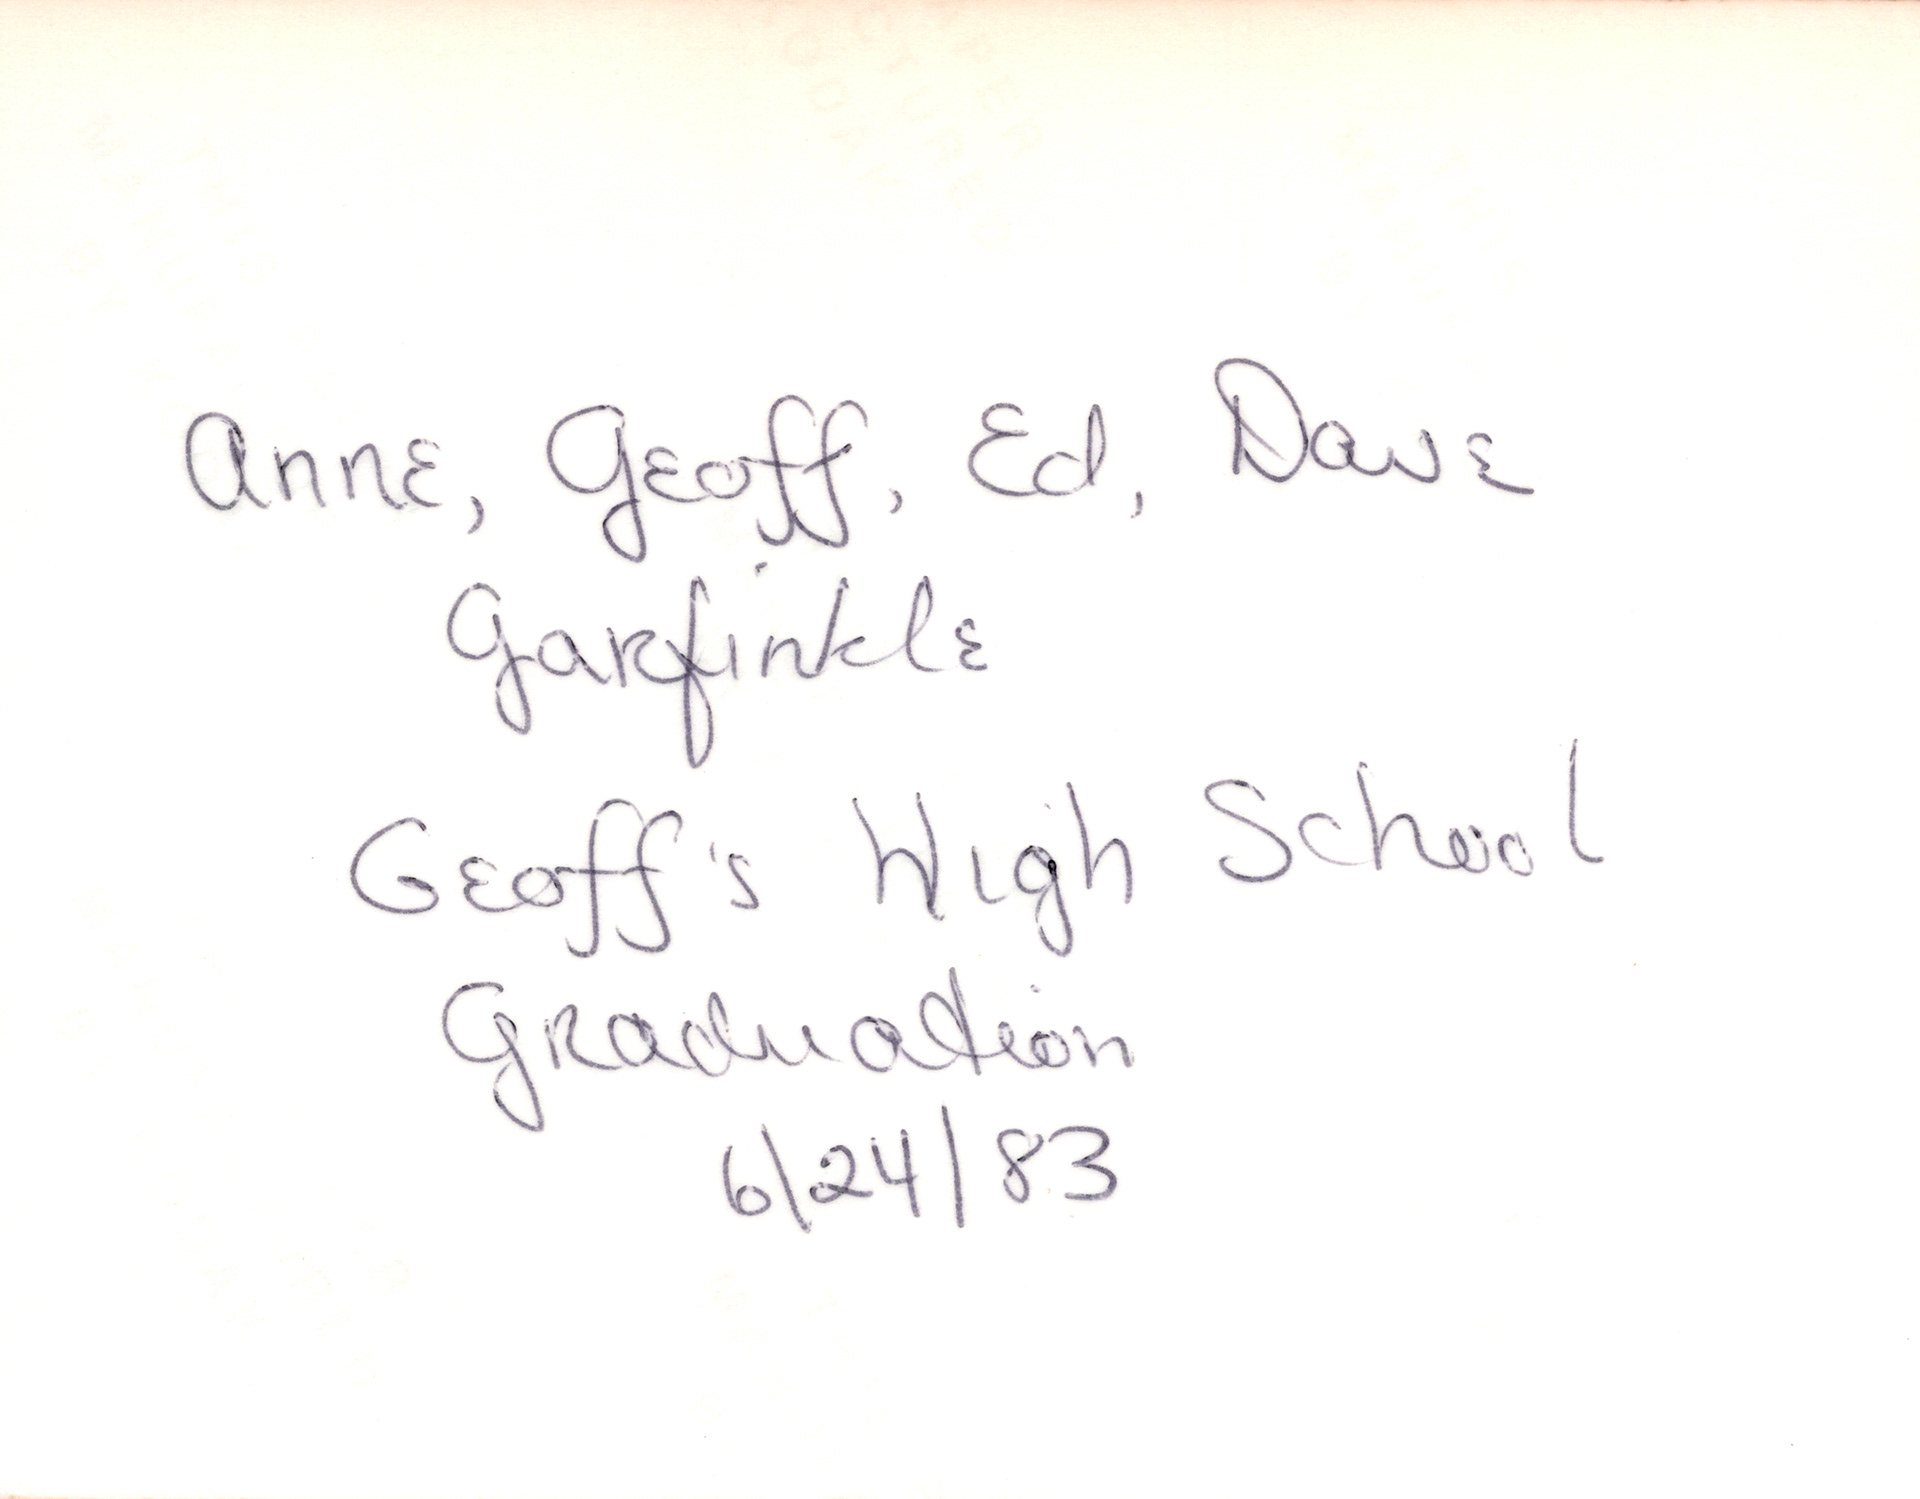 Anne, Geoff, Ed, Dave
Garfinkle
Geoff's High School
Graduation
6/24/83